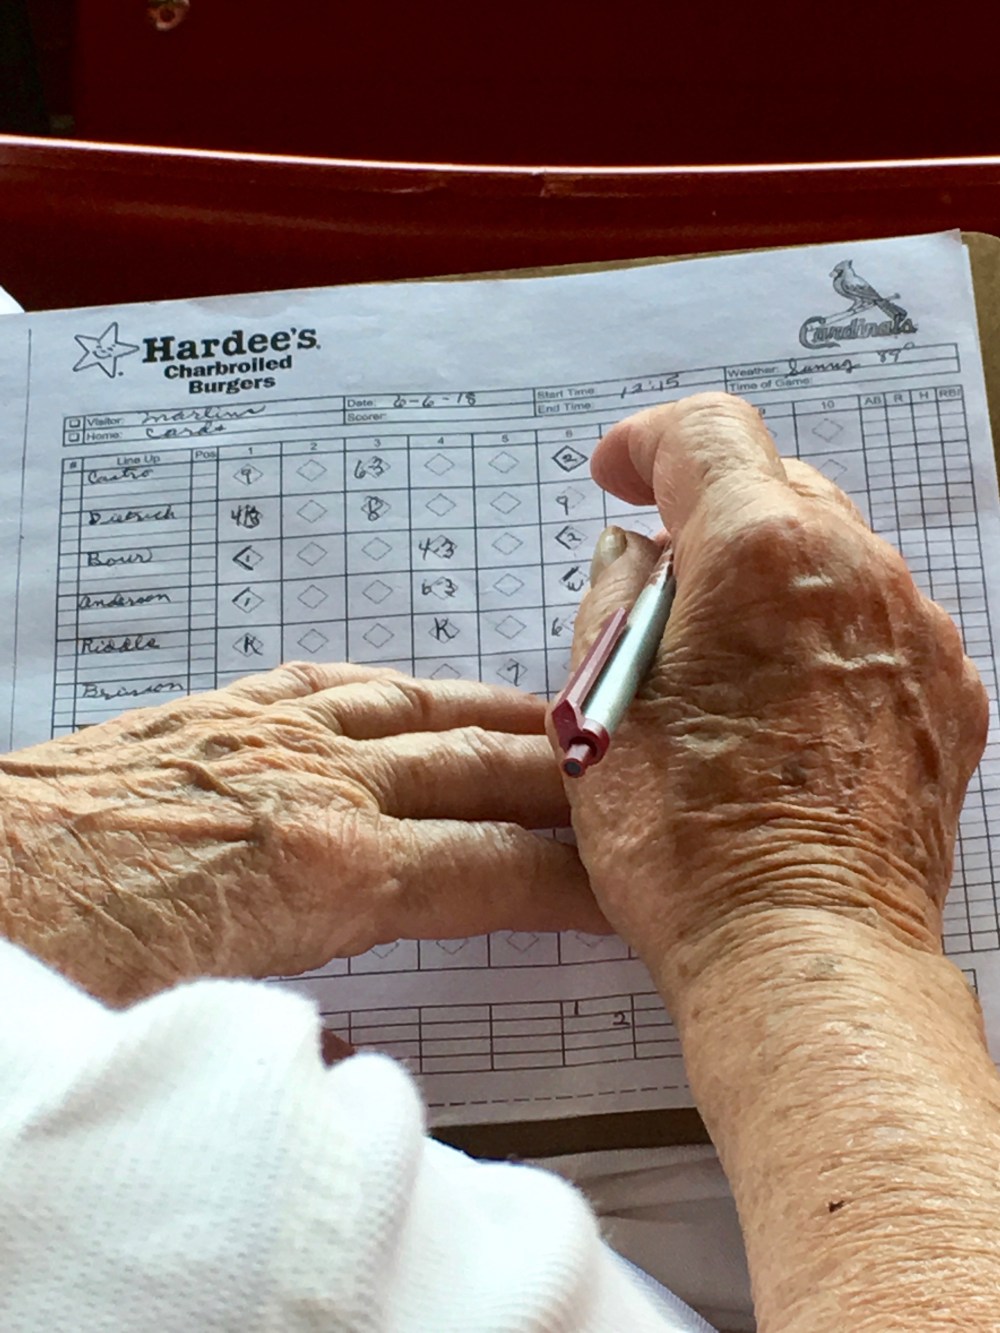 Hardee's
Charbroiled
Burgers
Cardinals
Visitor: Marlins Date: 6-6-18 Start Time: 12:15 Weather: Sunny 89°
Home: Cards Scorer: End Time: Time of Game:
# Line Up Pos 1 2 3 4 5 6 9 10 AB R H RBI
Castro 9 6-3 2
Dietrich 8 9
Bour 1 4-3 2
Anderson 1 6-3
Riddle K K 6-
Brinson 7
1 2